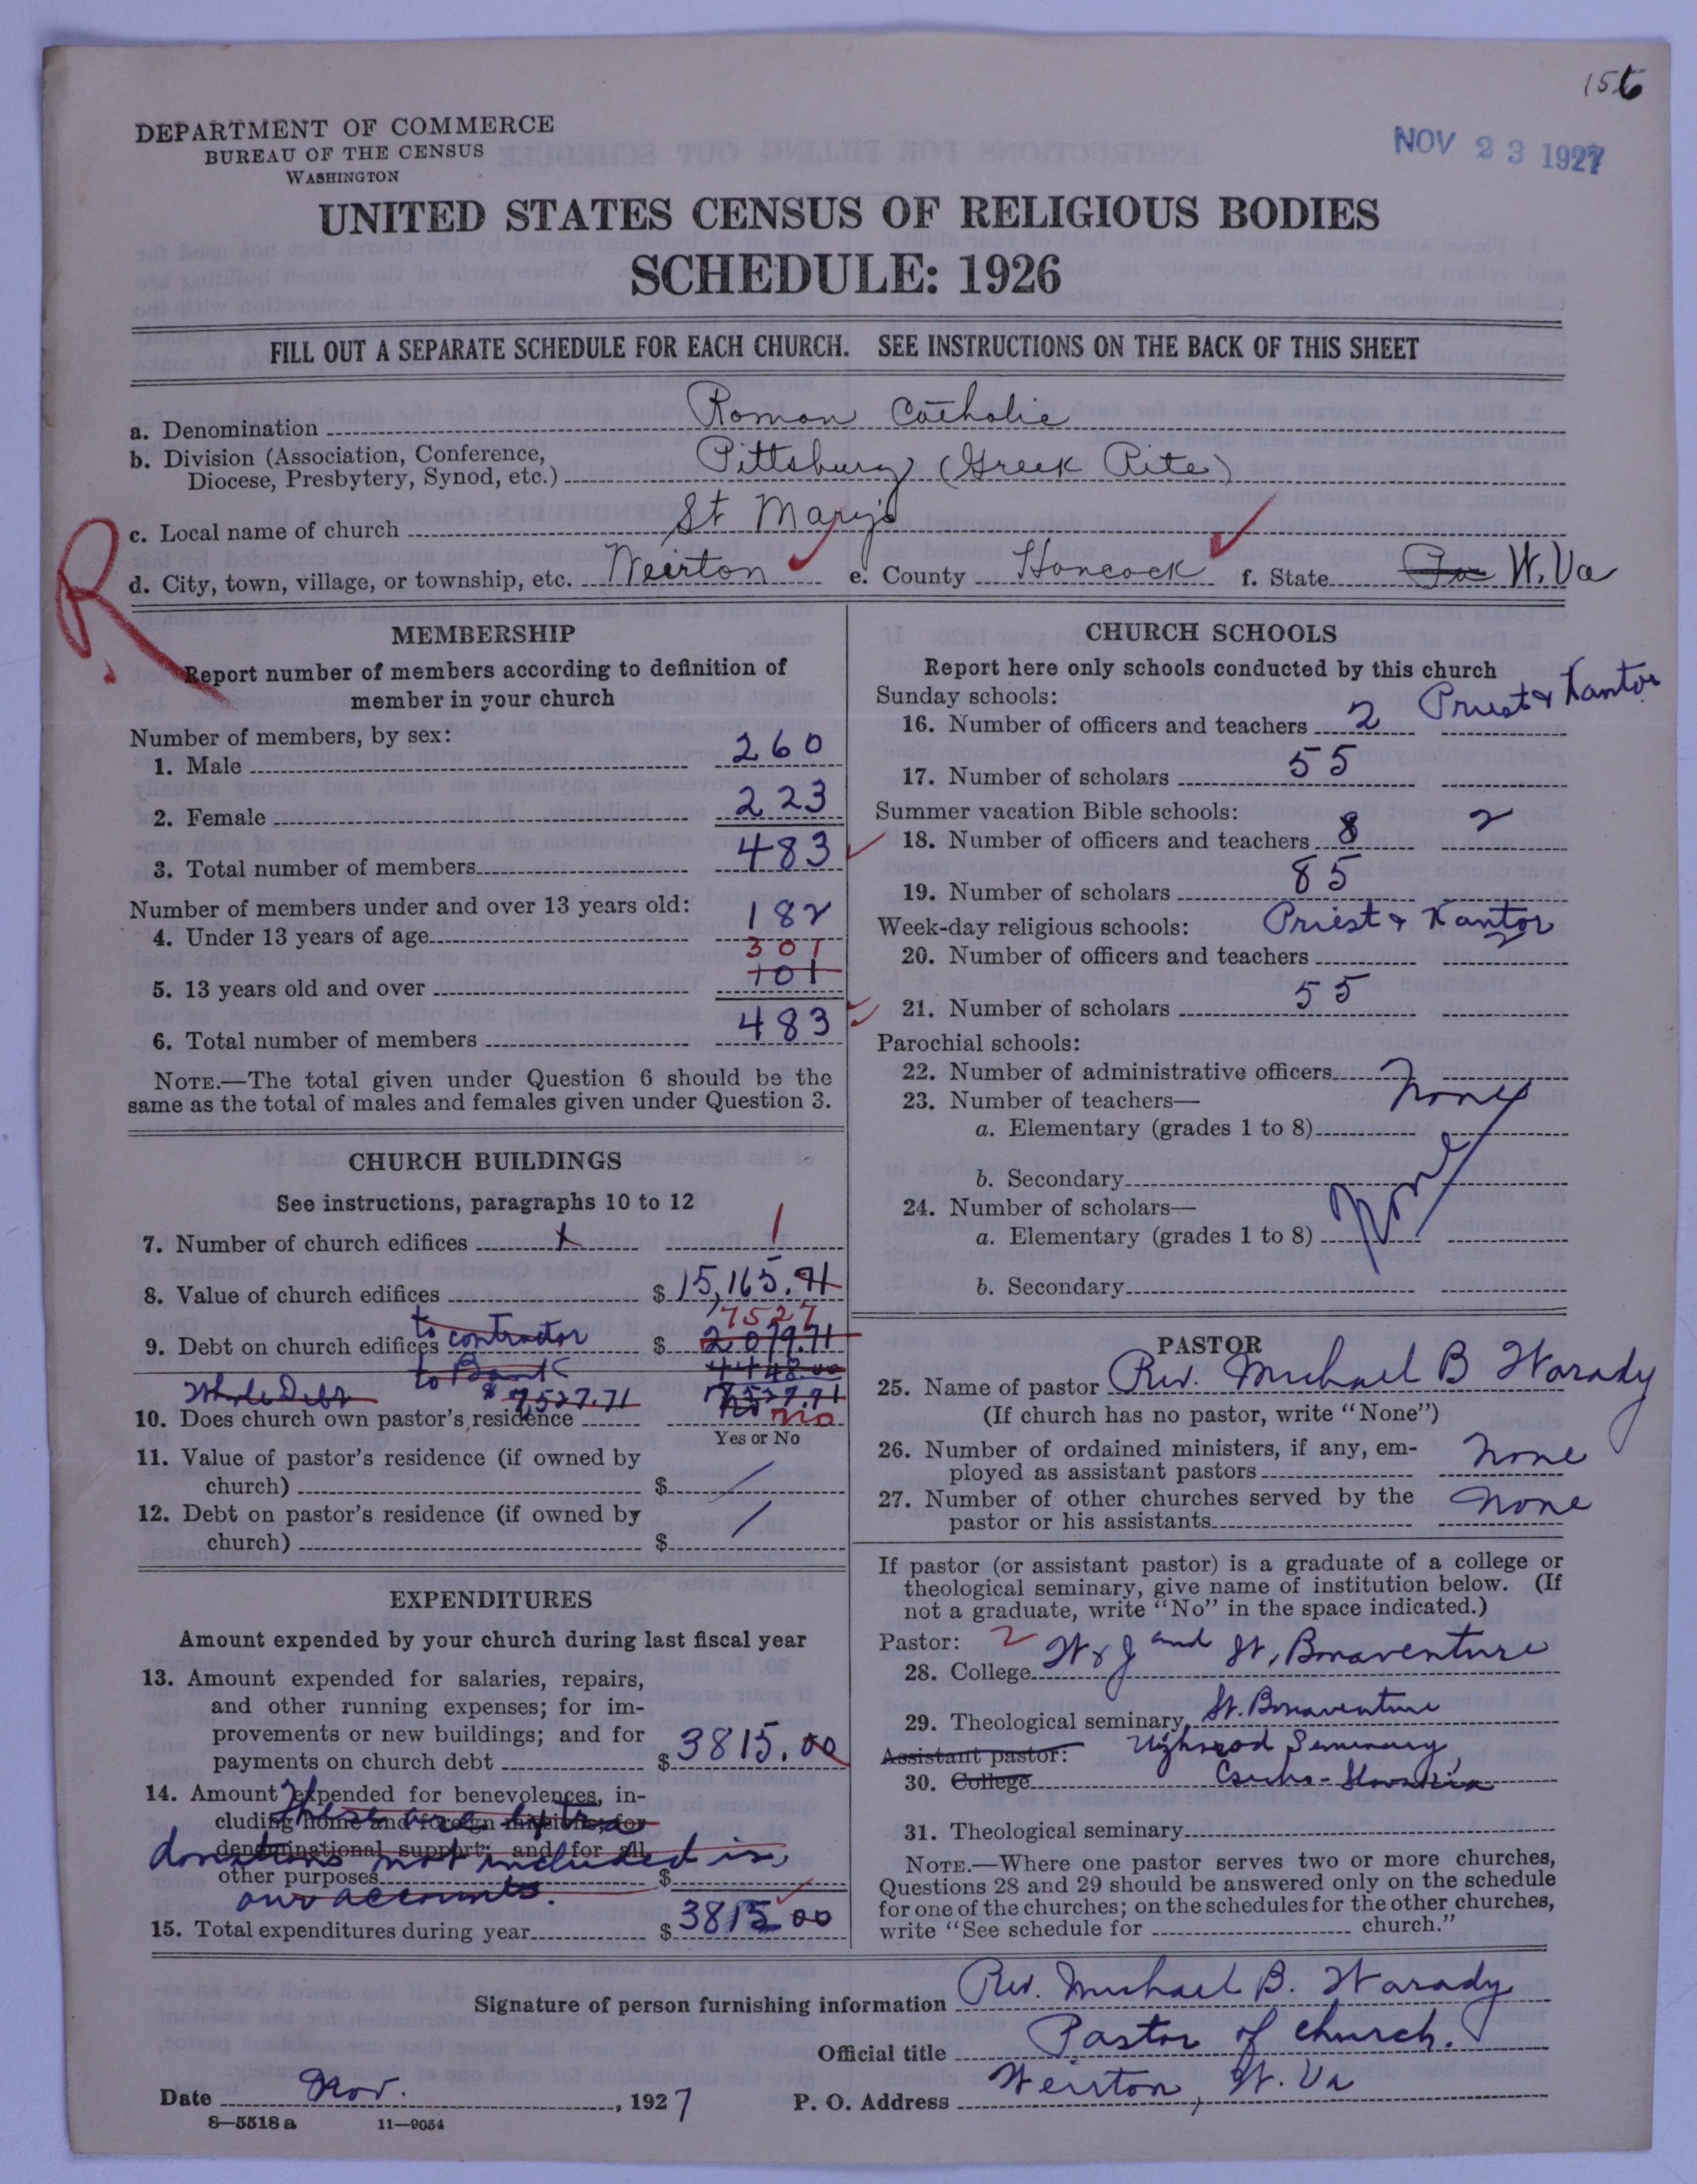 156
DEPARTMENT OF COMMERCE
BUREAU OF THE CENSUS
WASHINGTON
NOV 23 1927
UNITED STATES CENSUS OF RELIGIOUS BODIES
SCHEDULE: 1926
FILL OUT A SEPARATE SCHEDULE FOR EACH CHURCH. SEE INSTRUCTIONS ON THE BACK OF THIS SHEET
a. Denomination Roman Catholic
b. Division (Association, Conference, Diocese, Presbytery, Synod, etc.) Pittsburg (Greek Rite)
c. Local name of church St Mary's
R
d. City, town, village, or township, etc. Weirton e. County Hancock f. State Pa W. Va
MEMBERSHIP
Report number of members according to definition of
member in your church
Number of members, by sex:
1. Male 260
2. Female 223
3. Total number of members 483
Number of members under and over 13 years old:
4. Under 13 years of age 182
301
5. 13 years old and over 101
6. Total number of members 483
NOTE.—The total given under Question 6 should be the
same as the total of males and females given under Question 3.
CHURCH BUILDINGS
See instructions, paragraphs 10 to 12
7. Number of church edifices 1 1
8. Value of church edifices $ 15,165.71
7527
9. Debt on church edifices to contractor $ 2079.71
to Bank 4448.00
Whole Debt $ 7,527.71 7527.71
10. Does church own pastor's residence No no
Yes or No
11. Value of pastor's residence (if owned by
church) $ /
12. Debt on pastor's residence (if owned by
church) $ /
EXPENDITURES
Amount expended by your church during last fiscal year
13. Amount expended for salaries, repairs,
and other running expenses; for im-
provements or new buildings; and for
payments on church debt $ 3815.00
14. Amount expended for benevolences, in-
cluding home and foreign missions; for
denominational support; and for all
other purposes $
These are extra
donations not included in
our accounts.
15. Total expenditures during year $ 3815.00
CHURCH SCHOOLS
Report here only schools conducted by this church
Sunday schools:
16. Number of officers and teachers 2 Priest & Kantor
17. Number of scholars 55
Summer vacation Bible schools:
18. Number of officers and teachers 8 2
19. Number of scholars 85
Week-day religious schools: Priest & Kantor
20. Number of officers and teachers 2
21. Number of scholars 55
Parochial schools:
22. Number of administrative officers None
23. Number of teachers—
a. Elementary (grades 1 to 8)
b. Secondary
24. Number of scholars— None
a. Elementary (grades 1 to 8)
b. Secondary
PASTOR
25. Name of pastor Rev. Michael B Warady
(If church has no pastor, write "None")
26. Number of ordained ministers, if any, em-
ployed as assistant pastors None
27. Number of other churches served by the
pastor or his assistants None
If pastor (or assistant pastor) is a graduate of a college or
theological seminary, give name of institution below. (If
not a graduate, write "No" in the space indicated.)
Pastor: 2
28. College W & J and St. Bonaventure
29. Theological seminary St. Bonaventure
Assistant pastor: Uzhorod Seminary,
30. College Csecho-Slovakia
31. Theological seminary
NOTE.—Where one pastor serves two or more churches,
Questions 28 and 29 should be answered only on the schedule
for one of the churches; on the schedules for the other churches,
write "See schedule for church."
Signature of person furnishing information Rev. Michael B. Warady
Official title Pastor of church.
Date Nov. , 1927 P. O. Address Weirton, W. Va
8—5518 a 11—9054